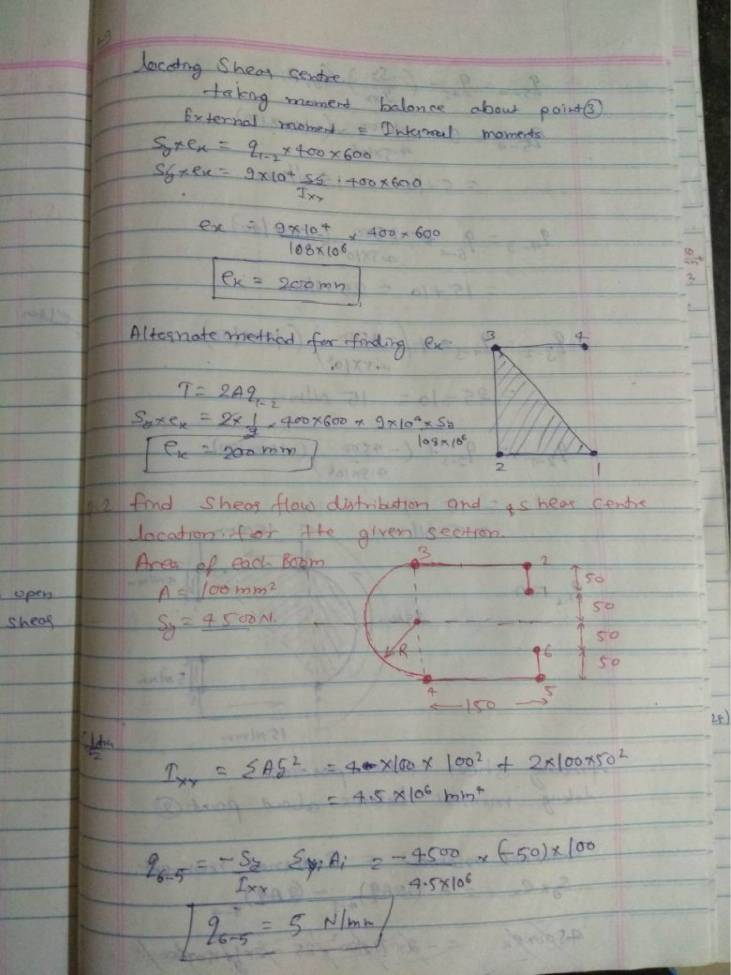 Locating Shear centre
taking moment balance about point ③
External moment = Internal moments
Sy×ex = q1-2 × 400×600
Sy×ex = 9×10⁴ Sy/Ixx · 400×600
ex = 9×10⁴/108×10⁶ × 400×600
ex = 200mm
Alternate method for finding ex
3 4
T = 2Aq1-2
Sy×ex = 2×1/2 × 400×600 × 9×10⁴×Sy/108×10⁶
ex = 200mm
2 1
2 find Shear flow distribution and shear centre
location for the given section.
Area of each Boom
A = 100mm²
Sy = 4500N.
open
shear
3 2
50
1
50
50
R 6
50
4 5
150
Ixx = ΣAy² = 4×100×100² + 2×100×50²
= 4.5×10⁶ mm⁴
q6-5 = -Sy/Ixx Σyi Ai = -4500/4.5×10⁶ × (-50)×100
q6-5 = 5 N/mm